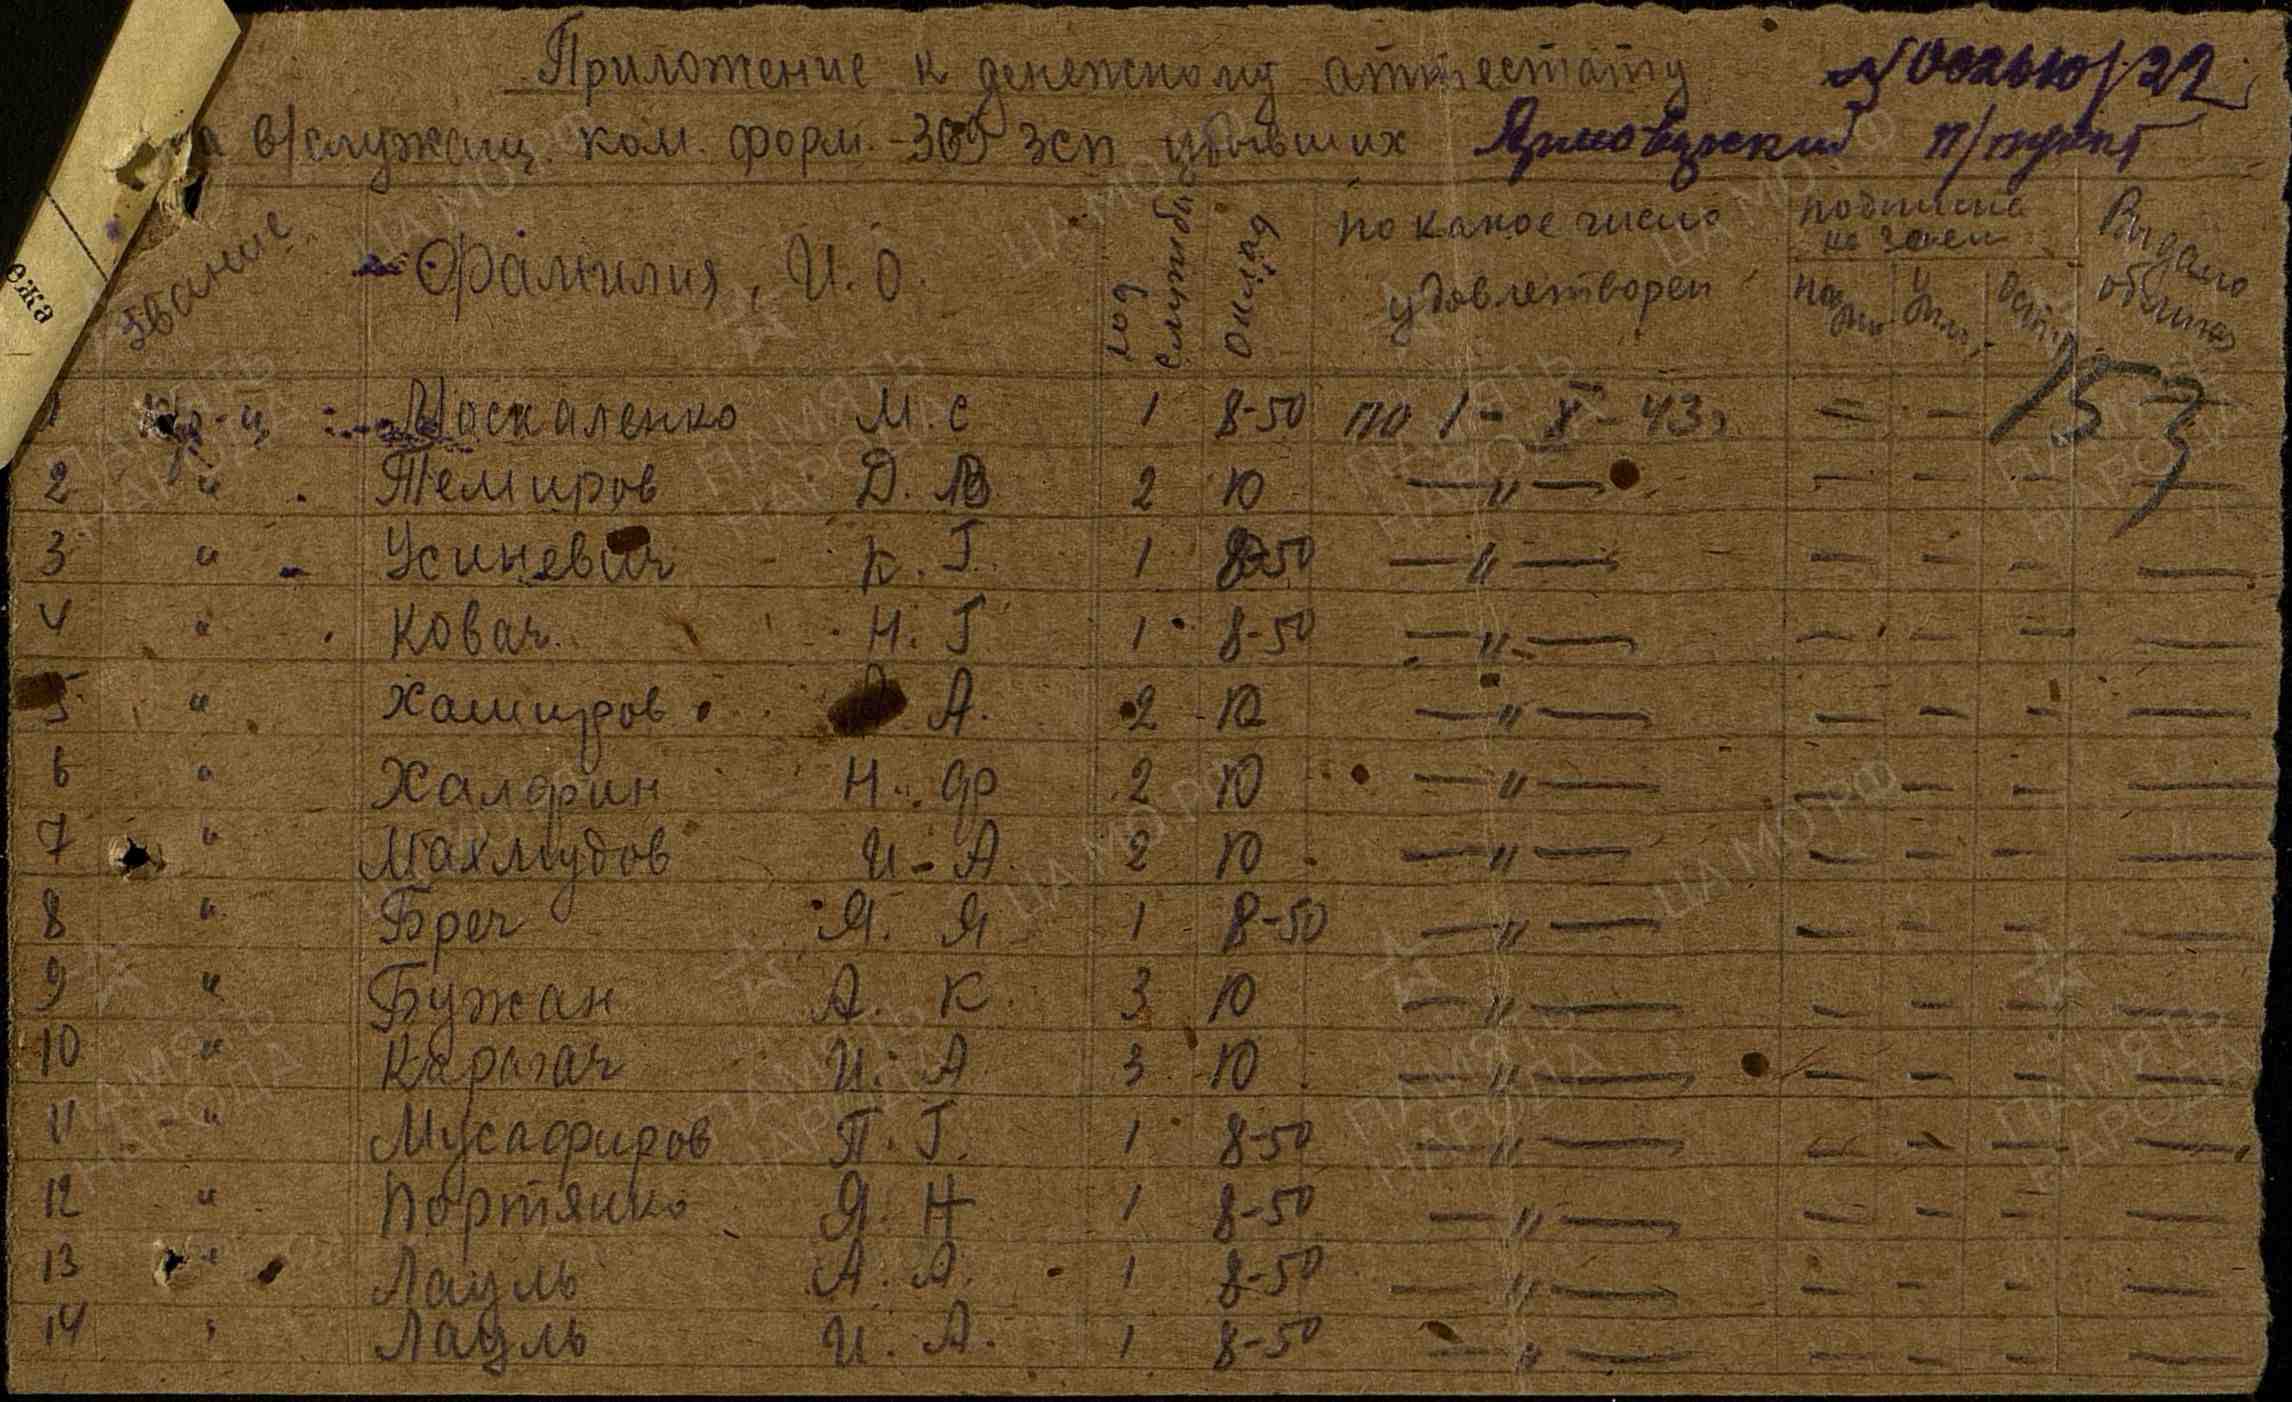 Приложение к денежному аттестату
на в/служащ. ком. форм. 369 зсп убывших п/пункт
Звание Фамилия, И.О. год службы Оклад по какое число удовлетворен подписка на заем Выдано облигац
1 Кр-ц Москаленко М. С 1 8-50 по 1 - X - 43 г — — —
2 " Темиров Д. В 2 10 — " — — — — —
3 " Усиневич К. Г. 1 8-50 — " — — — — —
4 " Ковач Н. Г 1 8-50 — " — — — — —
5 " Хамиров А. 2 10 — " — — — — —
6 " Халфин Н. Ф 2 10 — " — — — — —
7 " Махмудов И - А. 2 10 — " — — — — —
8 " Бреч Я. Я 1 8-50 — " — — — — —
9 " Бужан А. К. 3 10 — " — — — — —
10 " Карагач И. А 3 10 — " — — — — —
11 " Мусафиров П. Г. 1 8-50 — " — — — — —
12 " Портянко Я. Н 1 8-50 — " — — — — —
13 " Лауль А. А. 1 8-50 — " — — — — —
14 " Лауль И. А. 1 8-50 — " — — — — —
153
ежа
ПАМЯТЬ НАРОДА
ЦА МО РФ